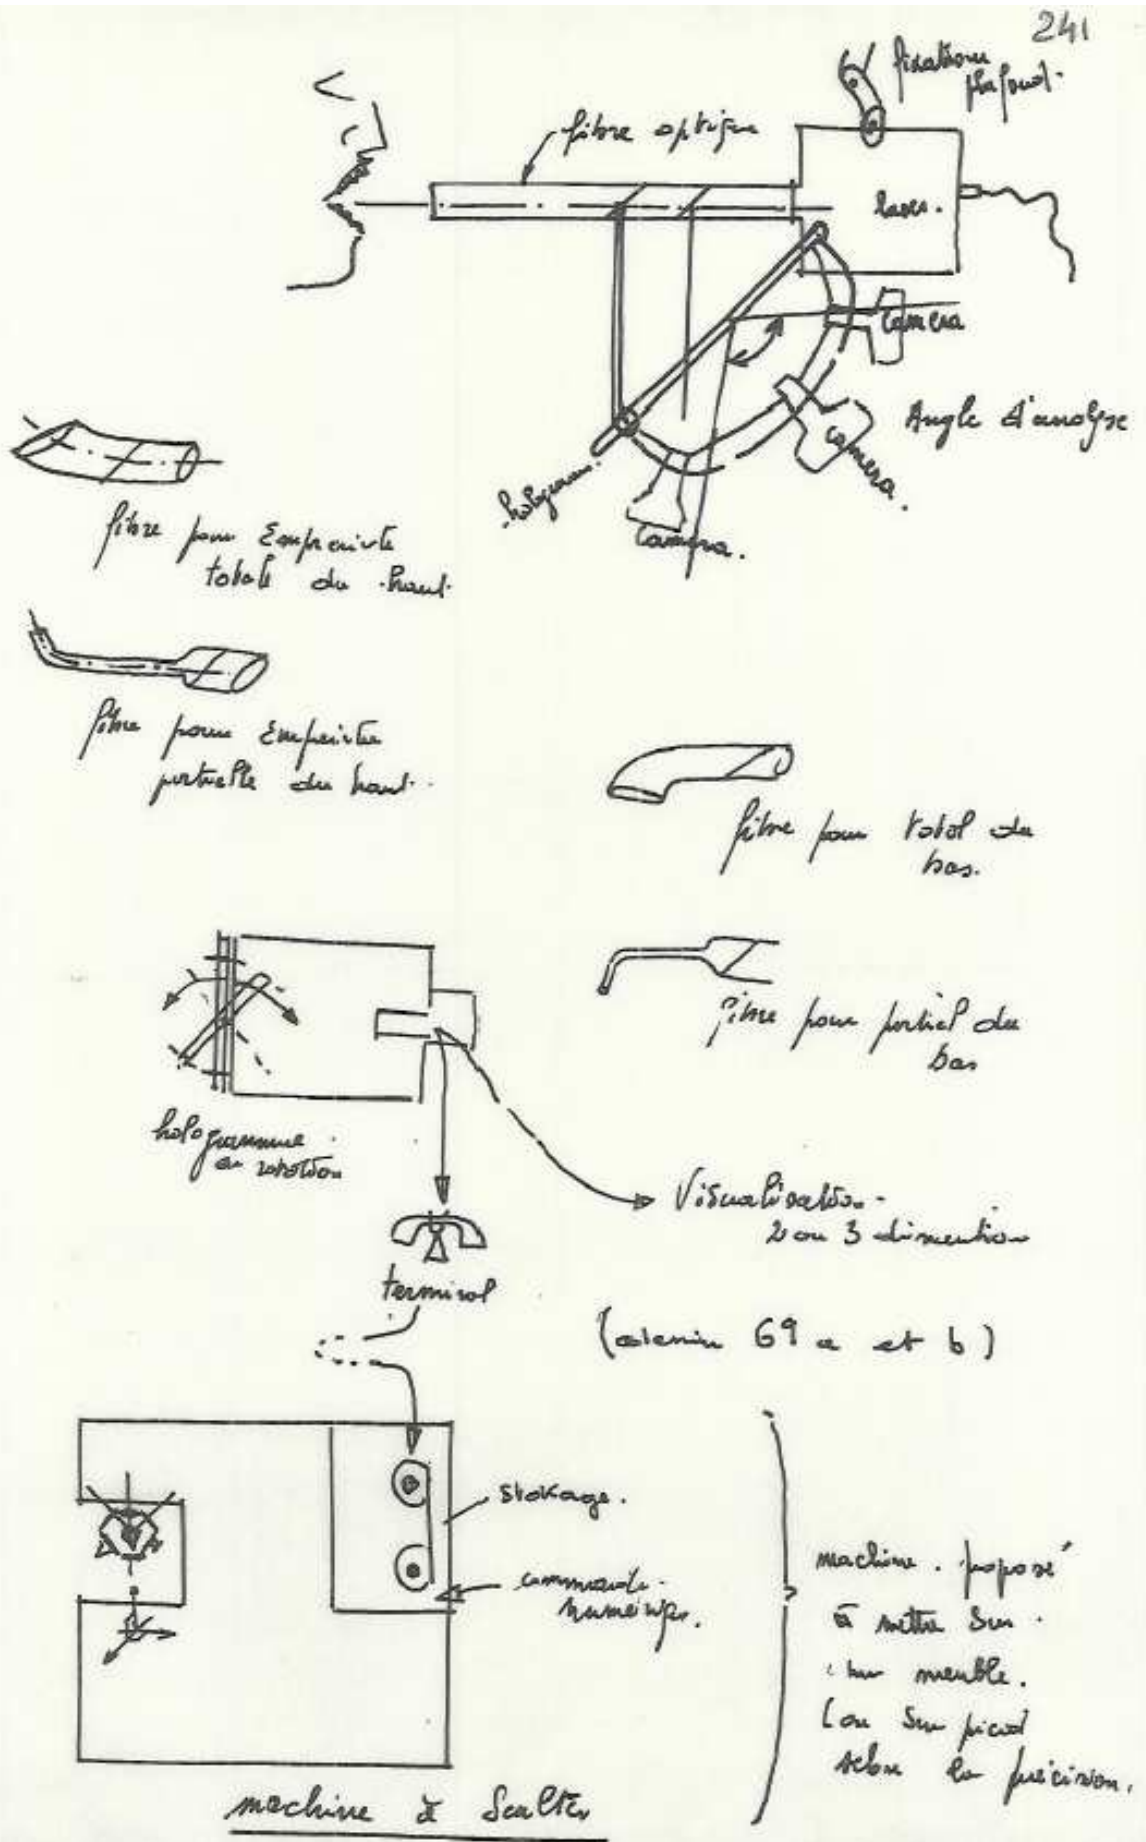 241
fixation
plafond.
fibre optique
laser.
camera
Angle d'analyse
camera.
hologramme
camera.
fibre pour Empreinte
totale du haut
fibre pour Empreinte
partielle du haut.
fibre pour total du
bas.
fibre pour partiel du
bas
hologramme
en rotation
Visualisation.
2 ou 3 dimention
terminal
69 a et b)
stokage.
commande.
numérique.
machine. proposé
à mettre sur
un meuble.
(ou sur pied
selon la précision.
machine à Sculter